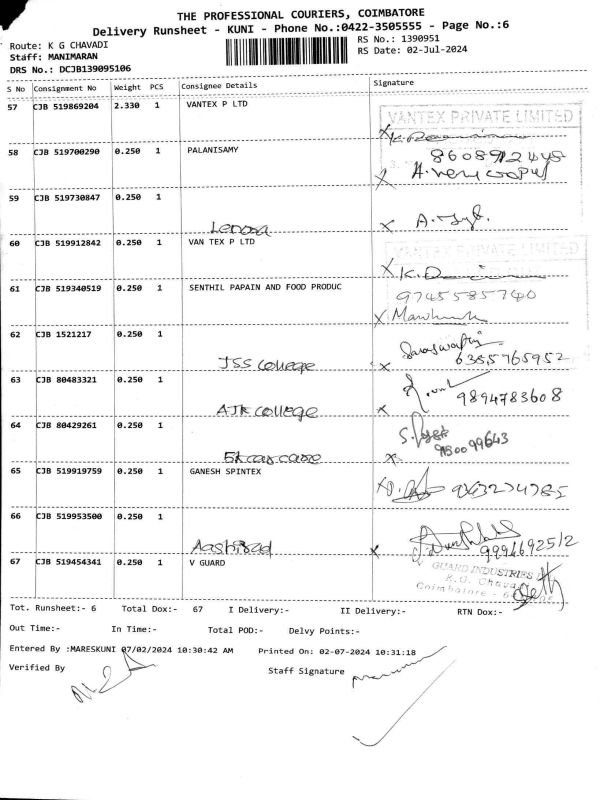 THE PROFESSIONAL COURIERS, COIMBATORE
Delivery Runsheet - KUNI - Phone No.:0422-3505555 - Page No.:6
Route: K G CHAVADI
RS No.: 1390951
Staff: MANIMARAN
RS Date: 02-Jul-2024
DRS No.: DCJB139095106
S No Consignment No Weight PCS Consignee Details Signature
57 CJB 519869204 2.330 1 VANTEX P LTD
VANTEX PRIVATE LIMITED
58 CJB 519700290 0.250 1 PALANISAMY
59 CJB 519730847 0.250 1
Lenora
60 CJB 519912842 0.250 1 VAN TEX P LTD
VANTEX PRIVATE LIMITED
61 CJB 519340519 0.250 1 SENTHIL PAPAIN AND FOOD PRODUC
9745585740
62 CJB 1521217 0.250 1
JSS College
6385765952
63 CJB 80483321 0.250 1
AJK College
9894783608
64 CJB 80429261 0.250 1
65 CJB 519919759 0.250 1 GANESH SPINTEX
66 CJB 519953500 0.250 1
Aashirad
67 CJB 519454341 0.250 1 V GUARD
V GUARD INDUSTRIES
K.G. Chava
Coimbatore -
Tot. Runsheet:- 6 Total Dox:- 67 I Delivery:- II Delivery:- RTN Dox:-
Out Time:- In Time:- Total POD:- Delvy Points:-
Entered By :MARESKUNI 07/02/2024 10:30:42 AM Printed On: 02-07-2024 10:31:18
Verified By Staff Signature